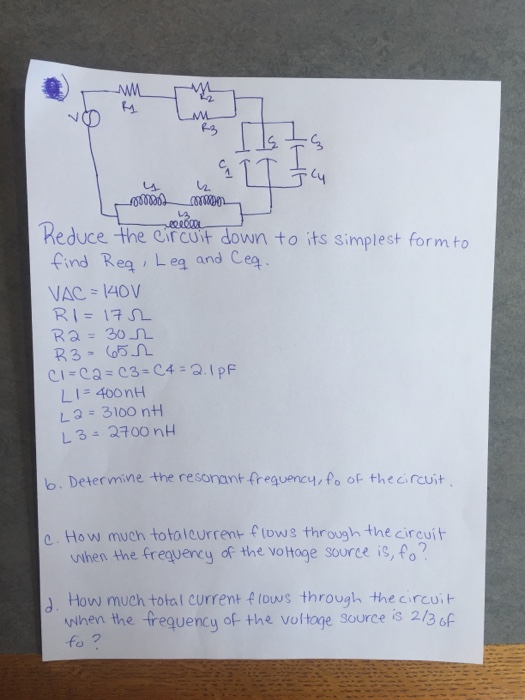 R1
R2
V
R3
C1
C2
C3
C4
L1
L2
L3
Reduce the circuit down to its simplest form to
find Req, Leq and Ceq.
VAC = 140V
R1 = 17 Ω
R2 = 30 Ω
R3 = 65 Ω
C1=C2=C3=C4=2.1pF
L1= 400nH
L2 = 3100 nH
L3 = 2700 nH
b. Determine the resonant frequency, fo of the circuit.
c. How much total current flows through the circuit
when the frequency of the voltage source is, fo?
d. How much total current flows through the circuit
when the frequency of the voltage source is 2/3 of
fo?